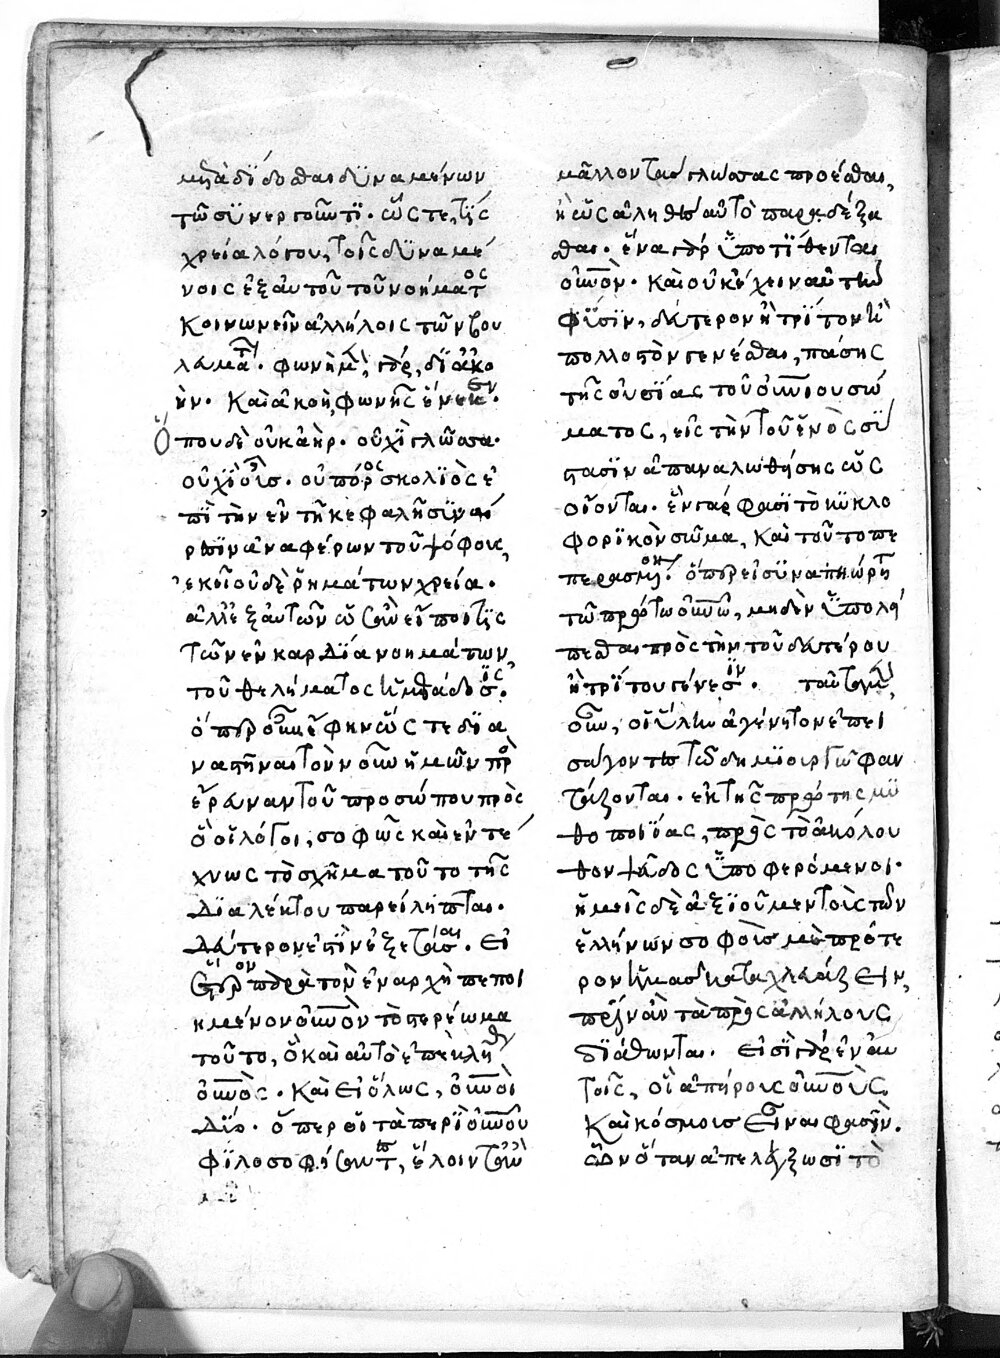 μεταδίδοσθαι δυναμένων
τῶ συνεργοῦντι. ὥστε, τίς
χρεία λόγου, τοῖς δυναμέ
νοις ἐξ αὐτοῦ τοῦ νοήματος
κοινωνεῖν ἀλλήλοις τῶν βου
λευμάτων. φωνὴ μὲν, γὰρ, δι' ἀκο
ὴν. καὶ ἀκοὴ, φωνῆς ἕνεκεν.
Ὅπου δὲ οὐκ ἀὴρ. οὐχὶ γλῶσσα.
οὐχὶ οὖς. οὐ πόρος σκολιὸς ἐ
πὶ τὴν ἐν τῆ κεφαλῆ συναί
σθησιν ἀναφέρων τοὺς ψόφους,
ἐκεῖ οὐδὲ ῥημάτων χρεία.
ἀλλ' ἐξ αὐτῶν ὡς ἂν εἴποι τὶς
τῶν ἐν καρδία νοημάτων,
τοῦ θελήματος ἡ μετάδοσις.
ὅπερ οὖν ἔφην ὥστε δια
ναστῆναι τὸν νοῦν ἡμῶν πρὸς
ἔρευναν τοῦ προσώπου πρὸς
ὃ οἱ λόγοι, σοφῶς καὶ ἐντέ
χνως τὸ σχῆμα τοῦτο τῆς
διαλέκτου παρείληπται.
δεύτερον ἐστὶν ἐξετάσαι. εἰ
ἕτερον παρὰ τὸν ἐν ἀρχῆ πεποι
ημένον οὐνὸν τὸ στερέωμα
τοῦτο, ὃ καὶ αὐτὸ ἐπεκλήθη
οὐνὸς. καὶ εἰ ὅλως, οὐνοὶ
δύο. ὅπερ οἱ τὰ περὶ οὐνοῦ
φιλοσοφήσαντες, ἕλοιντ' ἂν
μᾶλλον τὰς γλώσσας προέσθαι,
ἢ ὡς ἀληθὲς αὐτὸ παραδέξα
σθαι. ἕνα γὰρ ὑποτίθενται
οὐνὸν. καὶ οὐκ ἔχειν αὐτῶ
φύσιν, δεύτερον ἢ τρίτον ἢ
πολλοστὸν γενέσθαι, πάσης
τῆς οὐσίας τοῦ οὐνίου σώ
ματος, εἰς τὴν τοῦ ἑνὸς σύ
στασιν ἀπαναλωθείσης ὡς
οἴονται. ἓν γάρ φασι τὸ κυκλο
φορικὸν σῶμα, καὶ τοῦτο πε
περασμένον. ὅπερ εἰ συναπήρτισται
τῶ πρώτω οὐνῶ, μηδὲν ὑπολεί
πεσθαι πρὸς τὴν τοῦ δευτέρου
ἢ τρίτου γένεσιν. ταῦτα μὲν,
οὖν, οἱ ὕλην ἀγένητον ἐπει
σάγοντες τῶ δημιουργῶ φαν
τάζονται. ἐκ τῆς πρώτης μυ
θοποιίας, πρὸς τὸ ἀκόλου
θον ψεῦδος ὑποφερόμενοι.
ἡμεῖς δὲ ἀξιοῦμεν τοὺς τῶν
ἑλλήνων σοφοὺς μὲ πρότε
ρον ἡμᾶς καταχλευάζειν,
πρὶν ἂν τὰ πρὸς ἀλλήλους
διάθωνται. εἰσὶ γὰρ ἐν αὐ
τοῖς, οἳ ἀπείρους οὐνοὺς
καὶ κόσμους εἶναι φασὶν.
ὧν ὅταν ἀπελέγξωσι τὸ